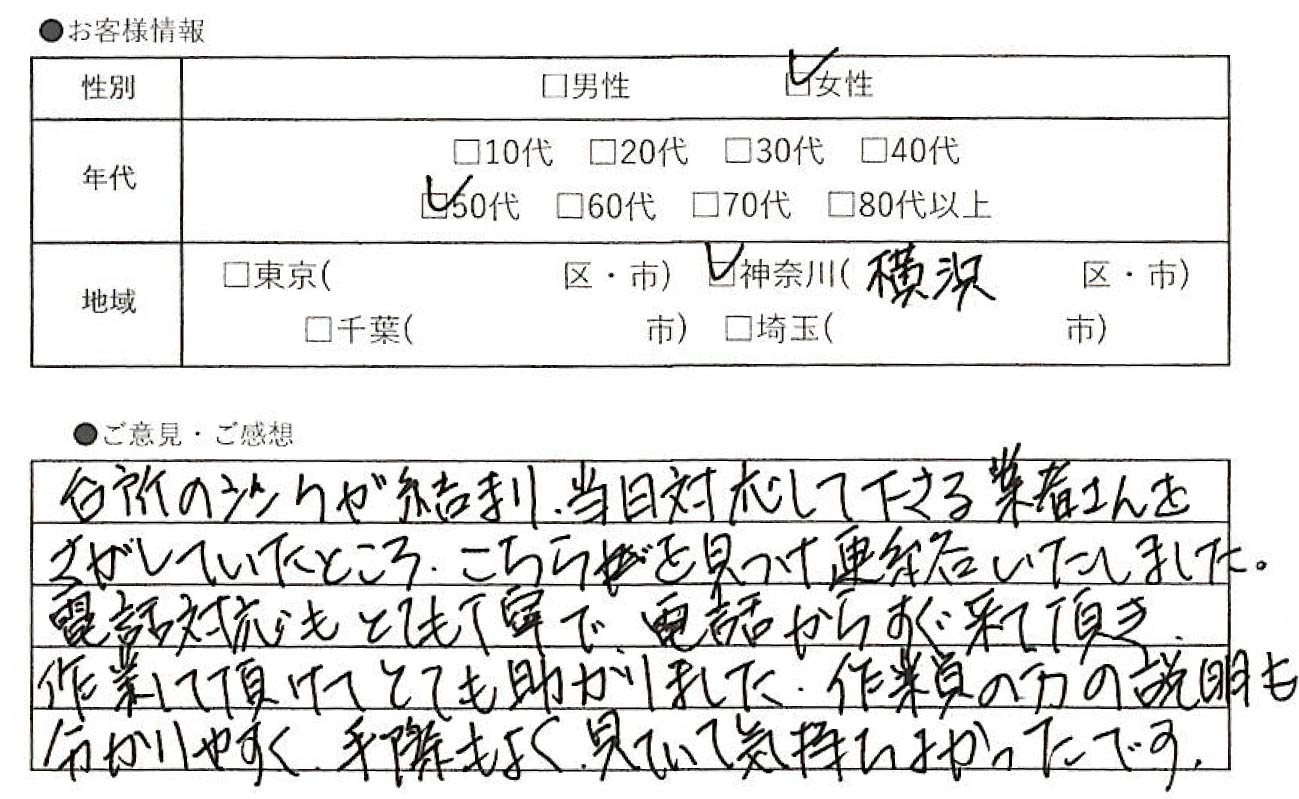 ●お客様情報
性別 □男性 ☑女性
年代 □10代 □20代 □30代 □40代
☑50代 □60代 □70代 □80代以上
地域 □東京( 区・市) ☑神奈川( 横浜 区・市)
□千葉( 市) □埼玉( 市)
●ご意見・ご感想
台所のシンクが結まり、当日対応して下さる業者さんを
さがしていたところ、こちらを見つけ連絡いたしました。
電話対応もとても丁寧で、電話からすぐ来て頂き、
作業して頂けてとても助かりました。作業員の方の説明も
分かりやすく、手際もよく、見ていて気持ちよかったです。